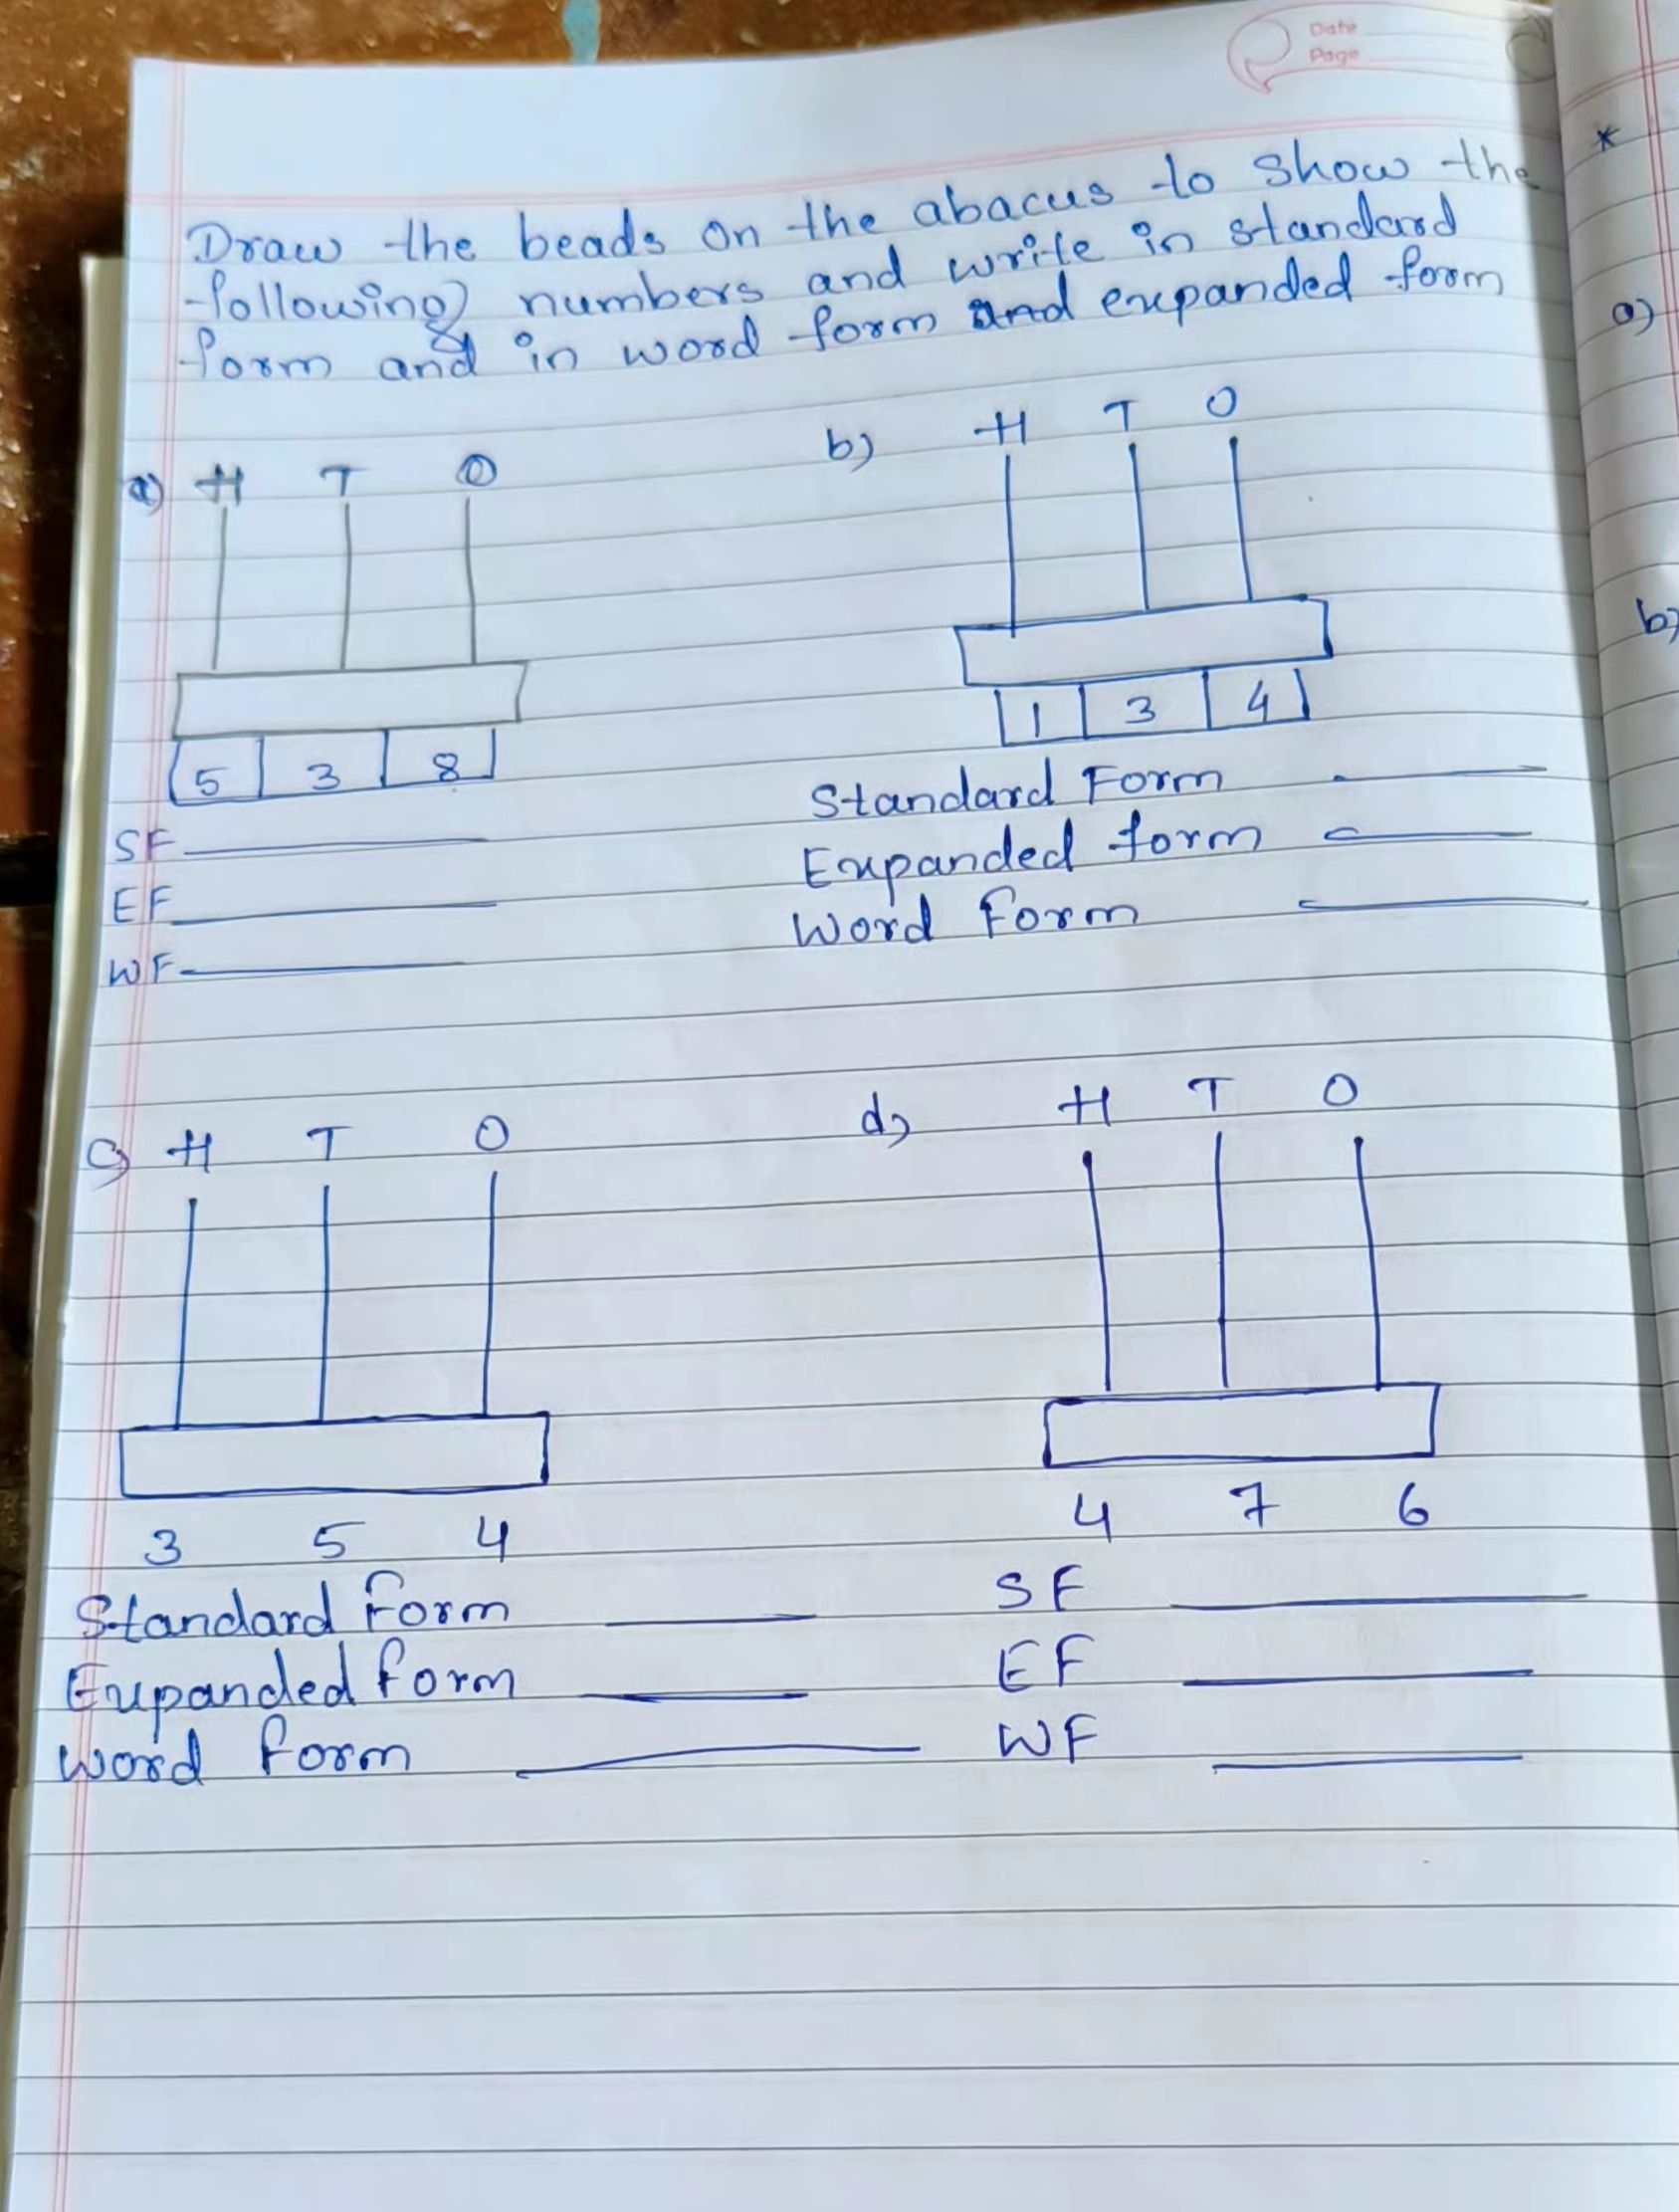 Date
Page
Draw the beads on the abacus to show the
following numbers and write in standard
form and in word form and expanded form
a) H T O
5 3 8
SF
EF
WF
b) H T O
1 3 4
Standard Form
Expanded form
Word Form
c) H T O
3 5 4
Standard Form
Expanded form
word form
d) H T O
4 7 6
SF
EF
WF
*
a)
b)